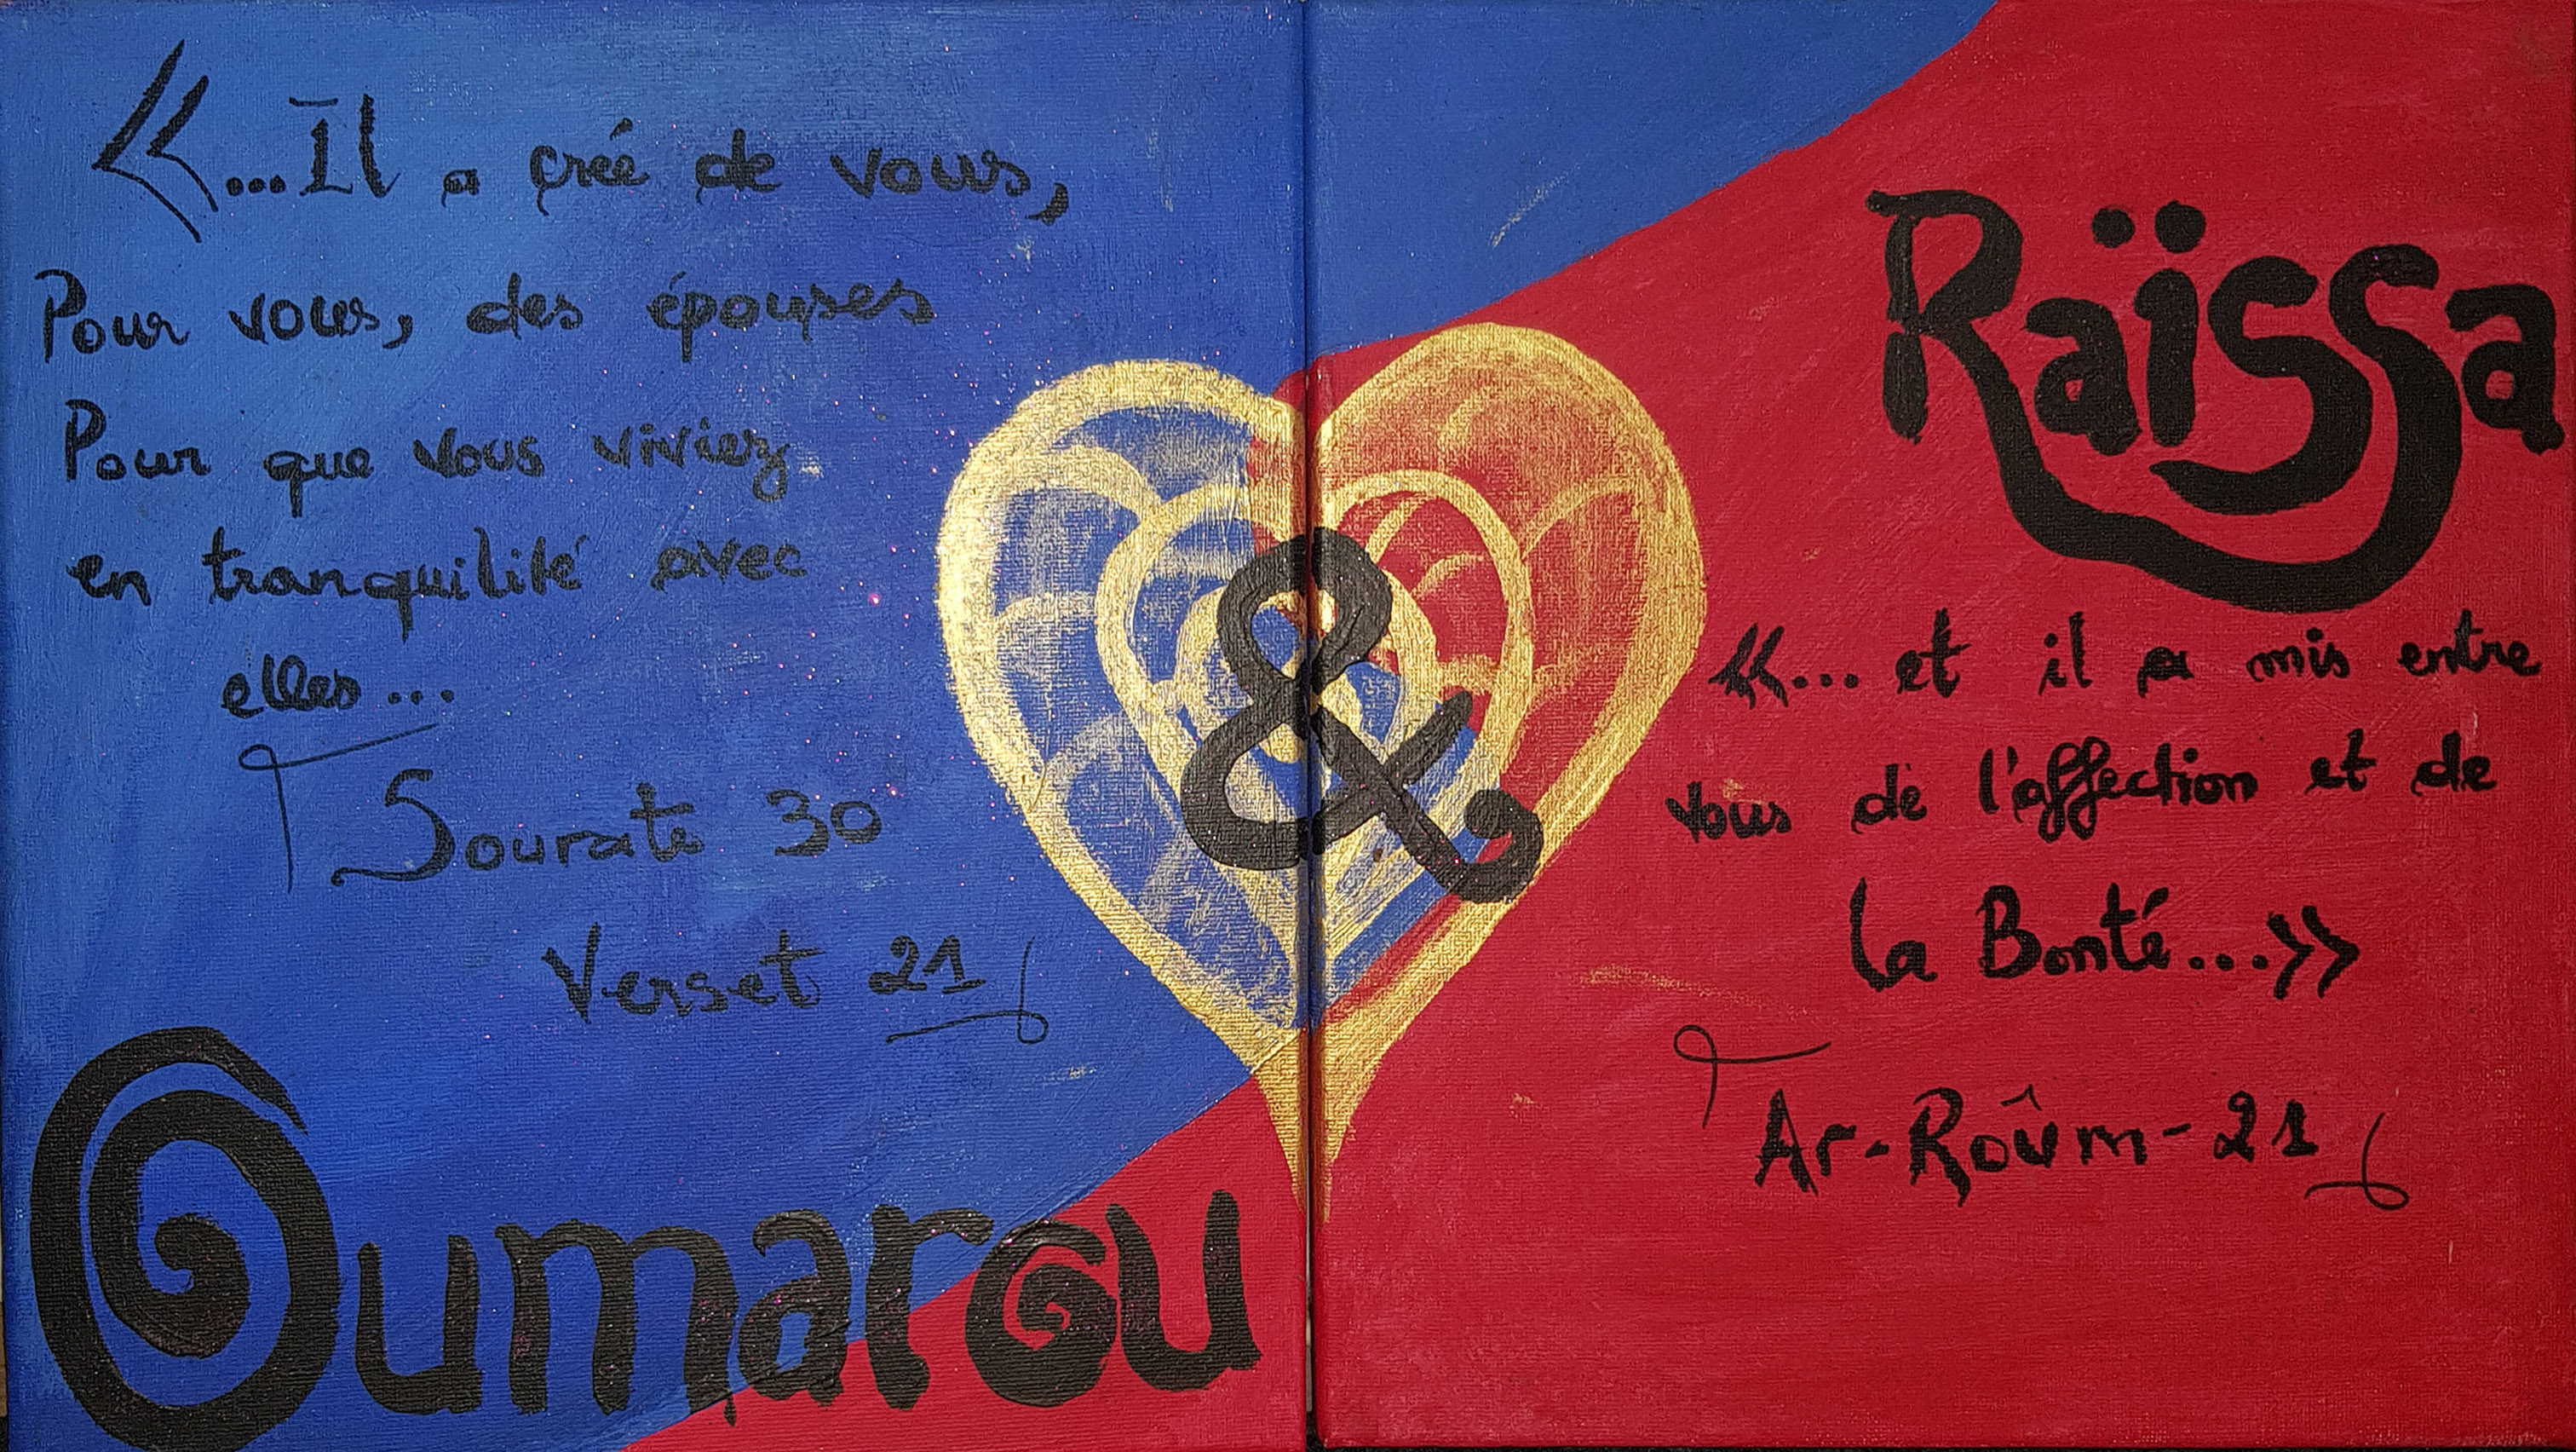 «...Il a créé de vous,
Pour vous, des épouses
Pour que vous viviez
en tranquilité avec
elles...
Sourate 30
Verset 21
Oumarou
&
Raïssa
«... et il a mis entre
vous de l'affection et de
la Bonté...»
Ar-Roûm-21